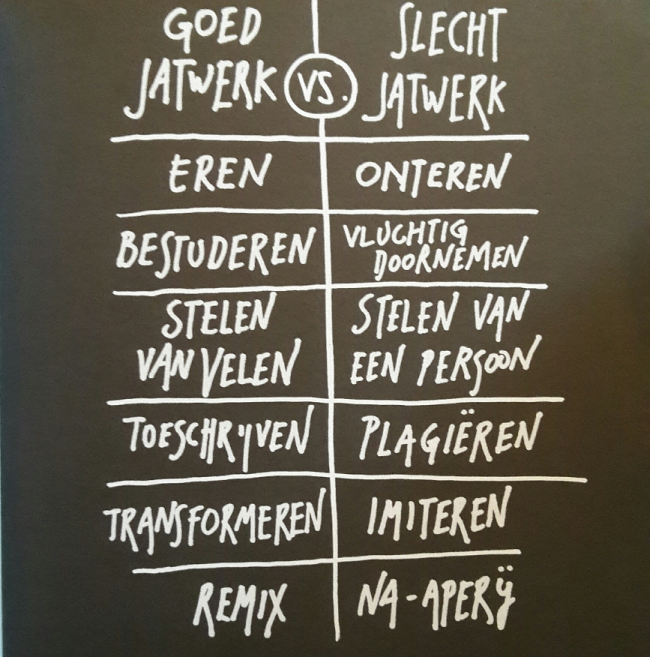 GOED JATWERK VS. SLECHT JATWERK
EREN ONTEREN
BESTUDEREN VLUCHTIG DOORNEMEN
STELEN VAN VELEN STELEN VAN EEN PERSOON
TOESCHRIJVEN PLAGIËREN
TRANSFORMEREN IMITEREN
REMIX NA-APERIJ